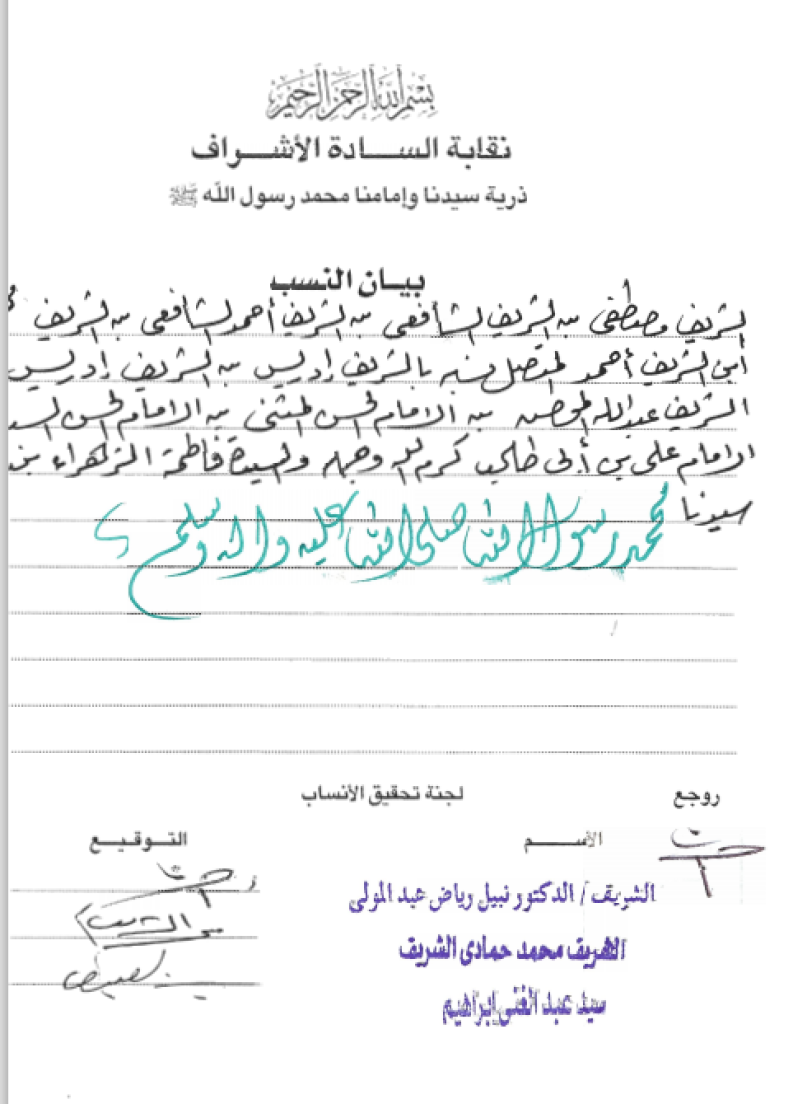 بسم الله الرحمن الرحيم
نقابة الســـادة الأشـــراف
ذرية سيدنا وإمامنا محمد رسول الله ﷺ
بيــان النسب
الشريف مصطفى بن الشريف الشافعى بن الشريف أحمد الشافعى بن الشريف
ابن الشريف أحمد المتصل نسبه بالشريف إدريس بن الشريف إدريس
الشريف عبدالله المحض بن الامام الحسن المثنى بن الامام الحسن
الامام على بن أبى طالب كرم الله وجهه والسيدة فاطمة الزهراء
سيدنا محمد رسول الله صلى الله عليه واله وسلم
روجع
لجنة تحقيق الأنساب
الأســـم
التــوقيــع
الشريف / الدكتور نبيل رياض عبد المولى
الشريف محمد حمادى الشريف
سيد عبد الغنى إبراهيم